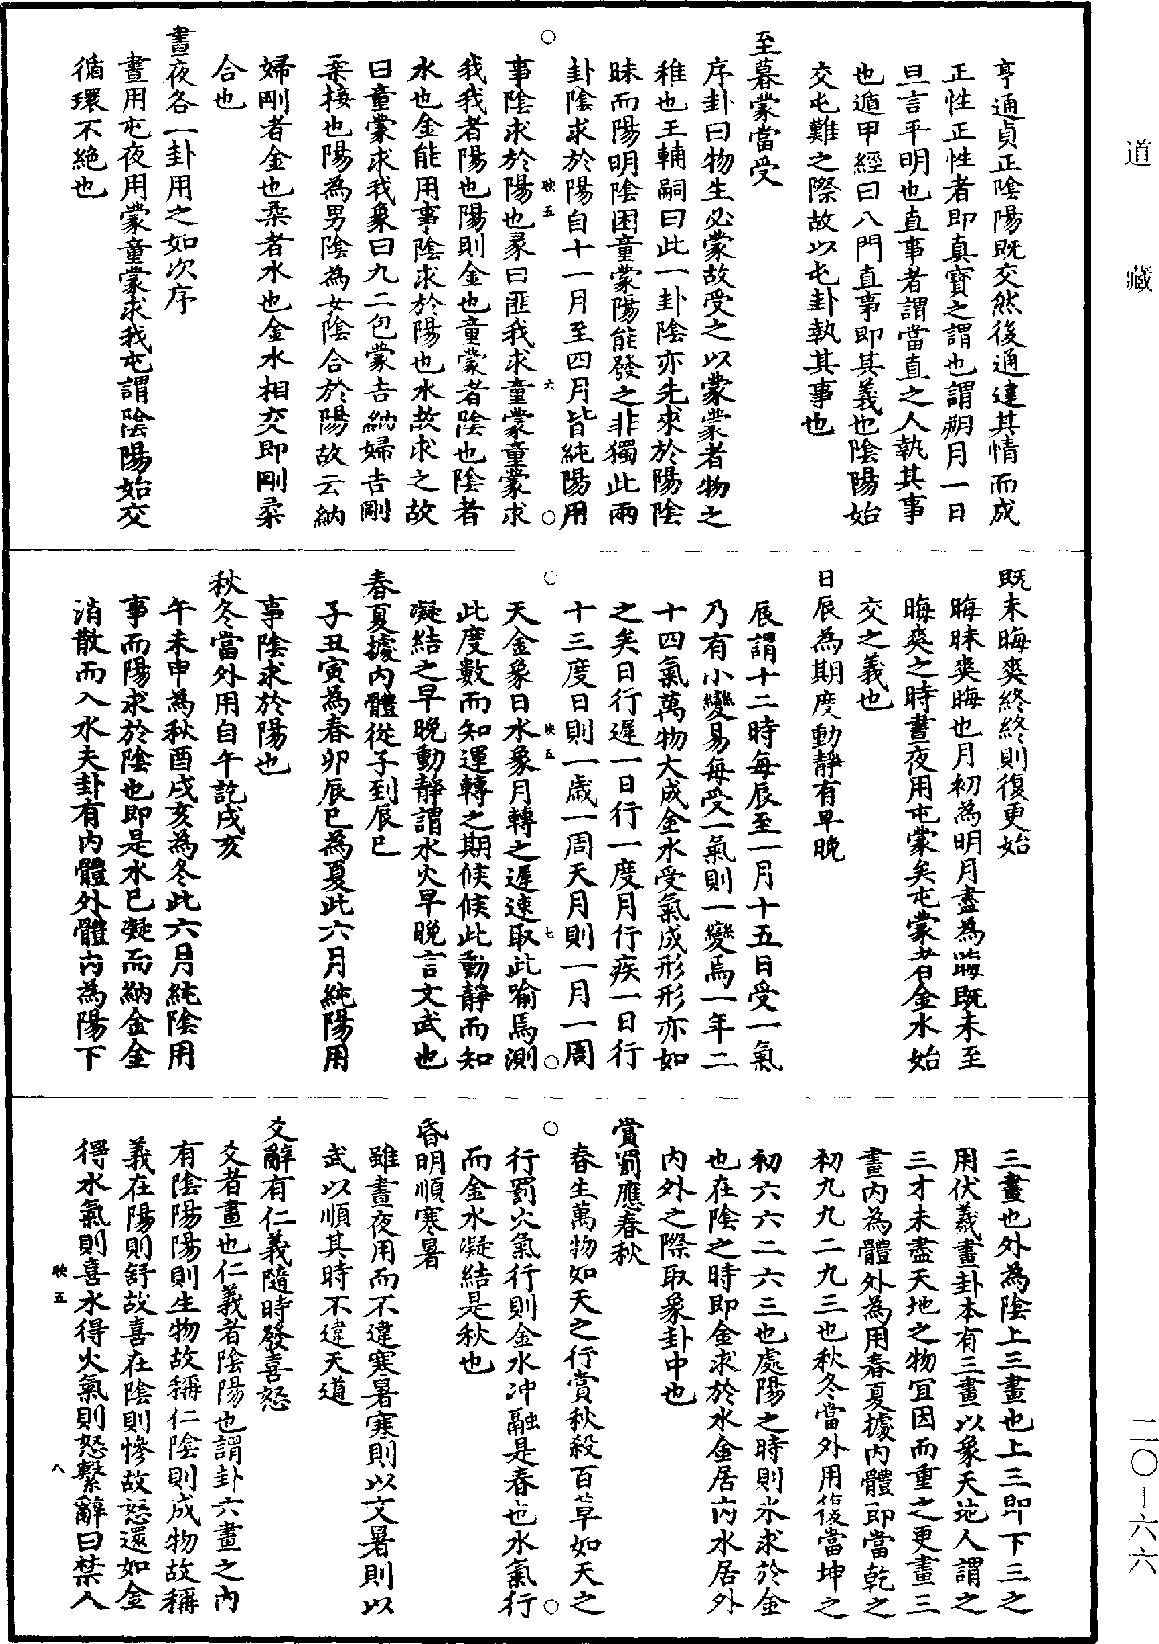 道藏
亨通貞正陰陽既交然後通達其情而成
正性正性者即真寶之謂也謂朔月一日
旦言平明也直事者謂當直之人執其事
也遁甲經曰八門直事即其義也陰陽始
交屯難之際故以屯卦執其事也
至暮蒙當受
序卦曰物生必蒙故受之以蒙蒙者物之
稚也王輔嗣曰此一卦陰亦先求於陽陰
昧而陽明陰困童蒙陽能發之非獨此兩
卦陰求於陽自十一月至四月皆純陽用
映五
六
事陰求於陽也彖曰匪我求童蒙童蒙求
我我者陽也陽則金也童蒙者陰也陰者
水也金能用事陰求於陽也水故求之故
曰童蒙求我象曰九二包蒙吉納婦吉剛
柔接也陽為男陰為女陰合於陽故云納
婦剛者金也柔者水也金水相交即剛柔
合也
晝夜各一卦用之如次序
晝用屯夜用蒙童蒙求我屯謂陰陽始交
循環不絶也
既未晦爽終終則復更始
晦昧爽晦也月初為明月盡為晦既未至
晦爽之時晝夜用屯蒙矣屯蒙者金水始
交之義也
日辰為期度動靜有早晚
辰謂十二時每辰至一月十五日受一氣
乃有小變易每受一氣則一變焉一年二
十四氣萬物大成金水受氣成形形亦如
之矣日行遲一日行一度月行疾一日行
十三度日則一歲一周天月則一月一周
映五
七
天金象日水象月轉之遲速取此喻焉測
此度數而知運轉之期候候此動靜而知
凝結之早晚動靜謂水火早晚言文武也
春夏據內體從子到辰巳
子丑寅為春卯辰巳為夏此六月純陽用
事陰求於陽也
秋冬當外用自午訖戌亥
午未申為秋酉戌亥為冬此六月純陰用
事而陽求於陰也即是水已凝而納金金
消散而入水夫卦有內體外體內為陽下
三畫也外為陰上三畫也上三即下三之
用伏羲畫卦本有三畫以象天地人謂之
三才未盡天地之物宜因而重之更畫三
畫內為體外為用春夏據內體即當乾之
初九九二九三也秋冬當外用復當坤之
初六六二六三也處陽之時則水求於金
也在陰之時即金求於水金居內水居外
內外之際取象卦中也
賞罰應春秋
春生萬物如天之行賞秋殺百草如天之
行罰火氣行則金水沖融是春也水氣行
而金水凝結是秋也
昏明順寒暑
雖晝夜用而不違寒暑寒則以文暑則以
武以順其時不違天道
爻辭有仁義隨時發喜怒
爻者畫也仁義者陰陽也謂卦六畫之內
有陰陽陽則生物故稱仁陰則成物故稱
義在陽則舒故喜在陰則慘故怒還如金
得水氣則喜水得火氣則怒繫辭曰禁人
映五
八
二〇—六六